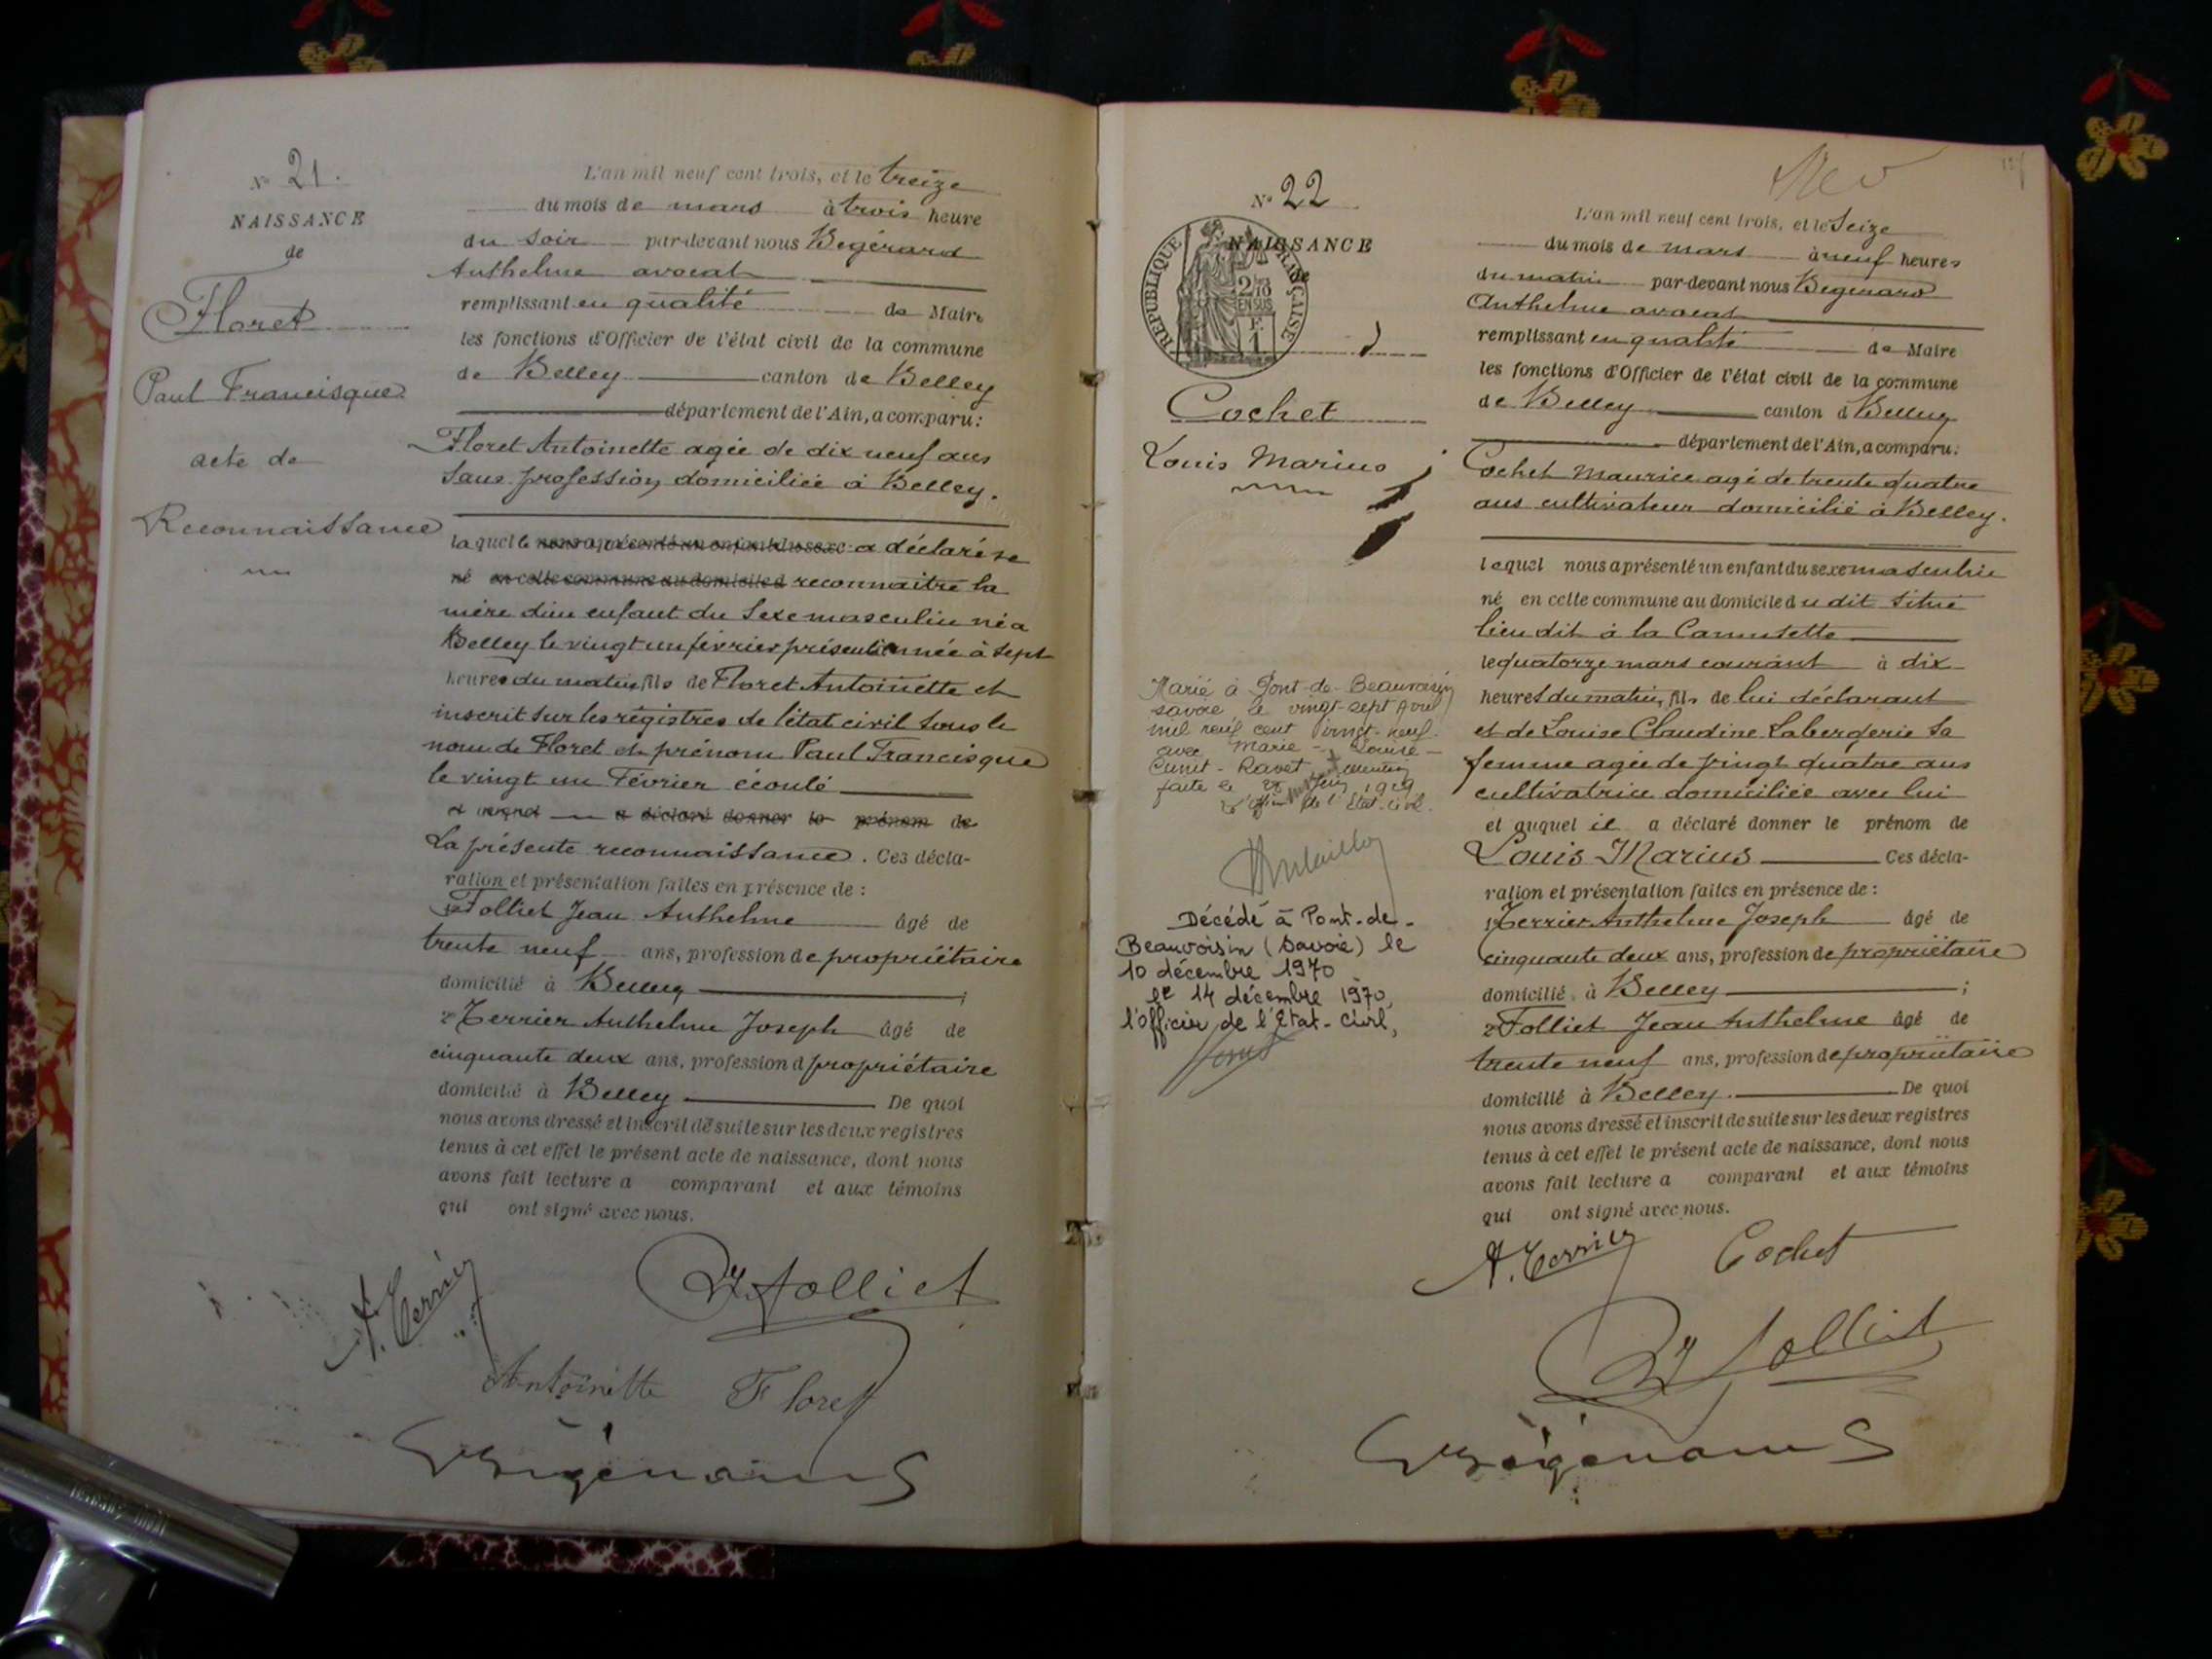 N° 21.
NAISSANCE
de
Floret
Paul Francisque
acte de
Reconnaissance
L'an mil neuf cent trois, et le treize
du mois de mars à trois heure
du soir par-devant nous Begérard
Anthelme avocat
remplissant en qualité de Maire
les fonctions d'Officier de l'état civil de la commune
de Belley canton de Belley
département de l'Ain, a comparu:
Floret Antoinette agée de dix neuf ans
sans profession, domiciliée à Belley.
laquelle nous a présenté un enfant du sexe a déclaré se
né en cette commune au domicile d reconnaitre la
mère d'un enfant du sexe masculin né a
Belley le vingt un février présente année à sept
heures du matin, fils de Floret Antoinette et
inscrit sur les régistres de l'état civil sous le
nom de Floret et prénom Paul Francisque
le vingt un Février écoulé
et auquel a déclaré donner le prénom de
La présente reconnaissance. Ces décla-
ration et présentation faites en présence de :
1° Folliet Jean Anthelme âgé de
trente neuf ans, profession de propriétaire
domicilié à Belley ;
2° Terrier Anthelme Joseph âgé de
cinquante deux ans, profession d propriétaire
domicilié à Belley De quoi
nous avons dressé et inscrit de suite sur les deux registres
tenus à cet effet le présent acte de naissance, dont nous
avons fait lecture a comparant et aux témoins
qui ont signé avec nous.
A. Terrier
Folliet
Antoinette Floret
Begérard
N° 22
NAISSANCE
de
REPUBLIQUE FRANÇAISE
2/10
EN SUS
F.
1
Cochet
Louis Marius
Marié à Pont-de-Beauvoisin
savoie le vingt-sept Avril
mil neuf cent vingt-neuf
avec Marie-Louise
Cunit-Ravet mention
faite le 1929
L'officier de l'Etat-civil.
Décédé à Pont-de-
Beauvoisin (Savoie) le
10 décembre 1970
le 14 décembre 1970,
l'officier de l'Etat-Civil,
L'an mil neuf cent trois, et le Seize
du mois de mars à neuf heures
du matin par-devant nous Begérard
Anthelme avocat
remplissant en qualité de Maire
les fonctions d'Officier de l'état civil de la commune
de Belley canton d Belley
département de l'Ain, a comparu:
Cochet Maurice agé de trente quatre
ans cultivateur domicilié à Belley.
lequel nous a présenté un enfant du sexe masculin
né en cette commune au domicile du dit situé
lieu dit à la Cannsette
le quatorze mars courant à dix
heures du matin, fils de lui déclarant
et de Louise Claudine Labergerie sa
femme agée de vingt quatre ans
cultivatrice domiciliée avec lui
et auquel il a déclaré donner le prénom de
Louis Marius Ces décla-
ration et présentation faites en présence de :
1° Terrier Anthelme Joseph âgé de
cinquante deux ans, profession de propriétaire
domicilié à Belley ;
2° Folliet Jean Anthelme âgé de
trente neuf ans, profession de propriétaire
domicilié à Belley. De quoi
nous avons dressé et inscrit de suite sur les deux registres
tenus à cet effet le présent acte de naissance, dont nous
avons fait lecture a comparant et aux témoins
qui ont signé avec nous.
A. Terrier Cochet
Folliet
Begérard